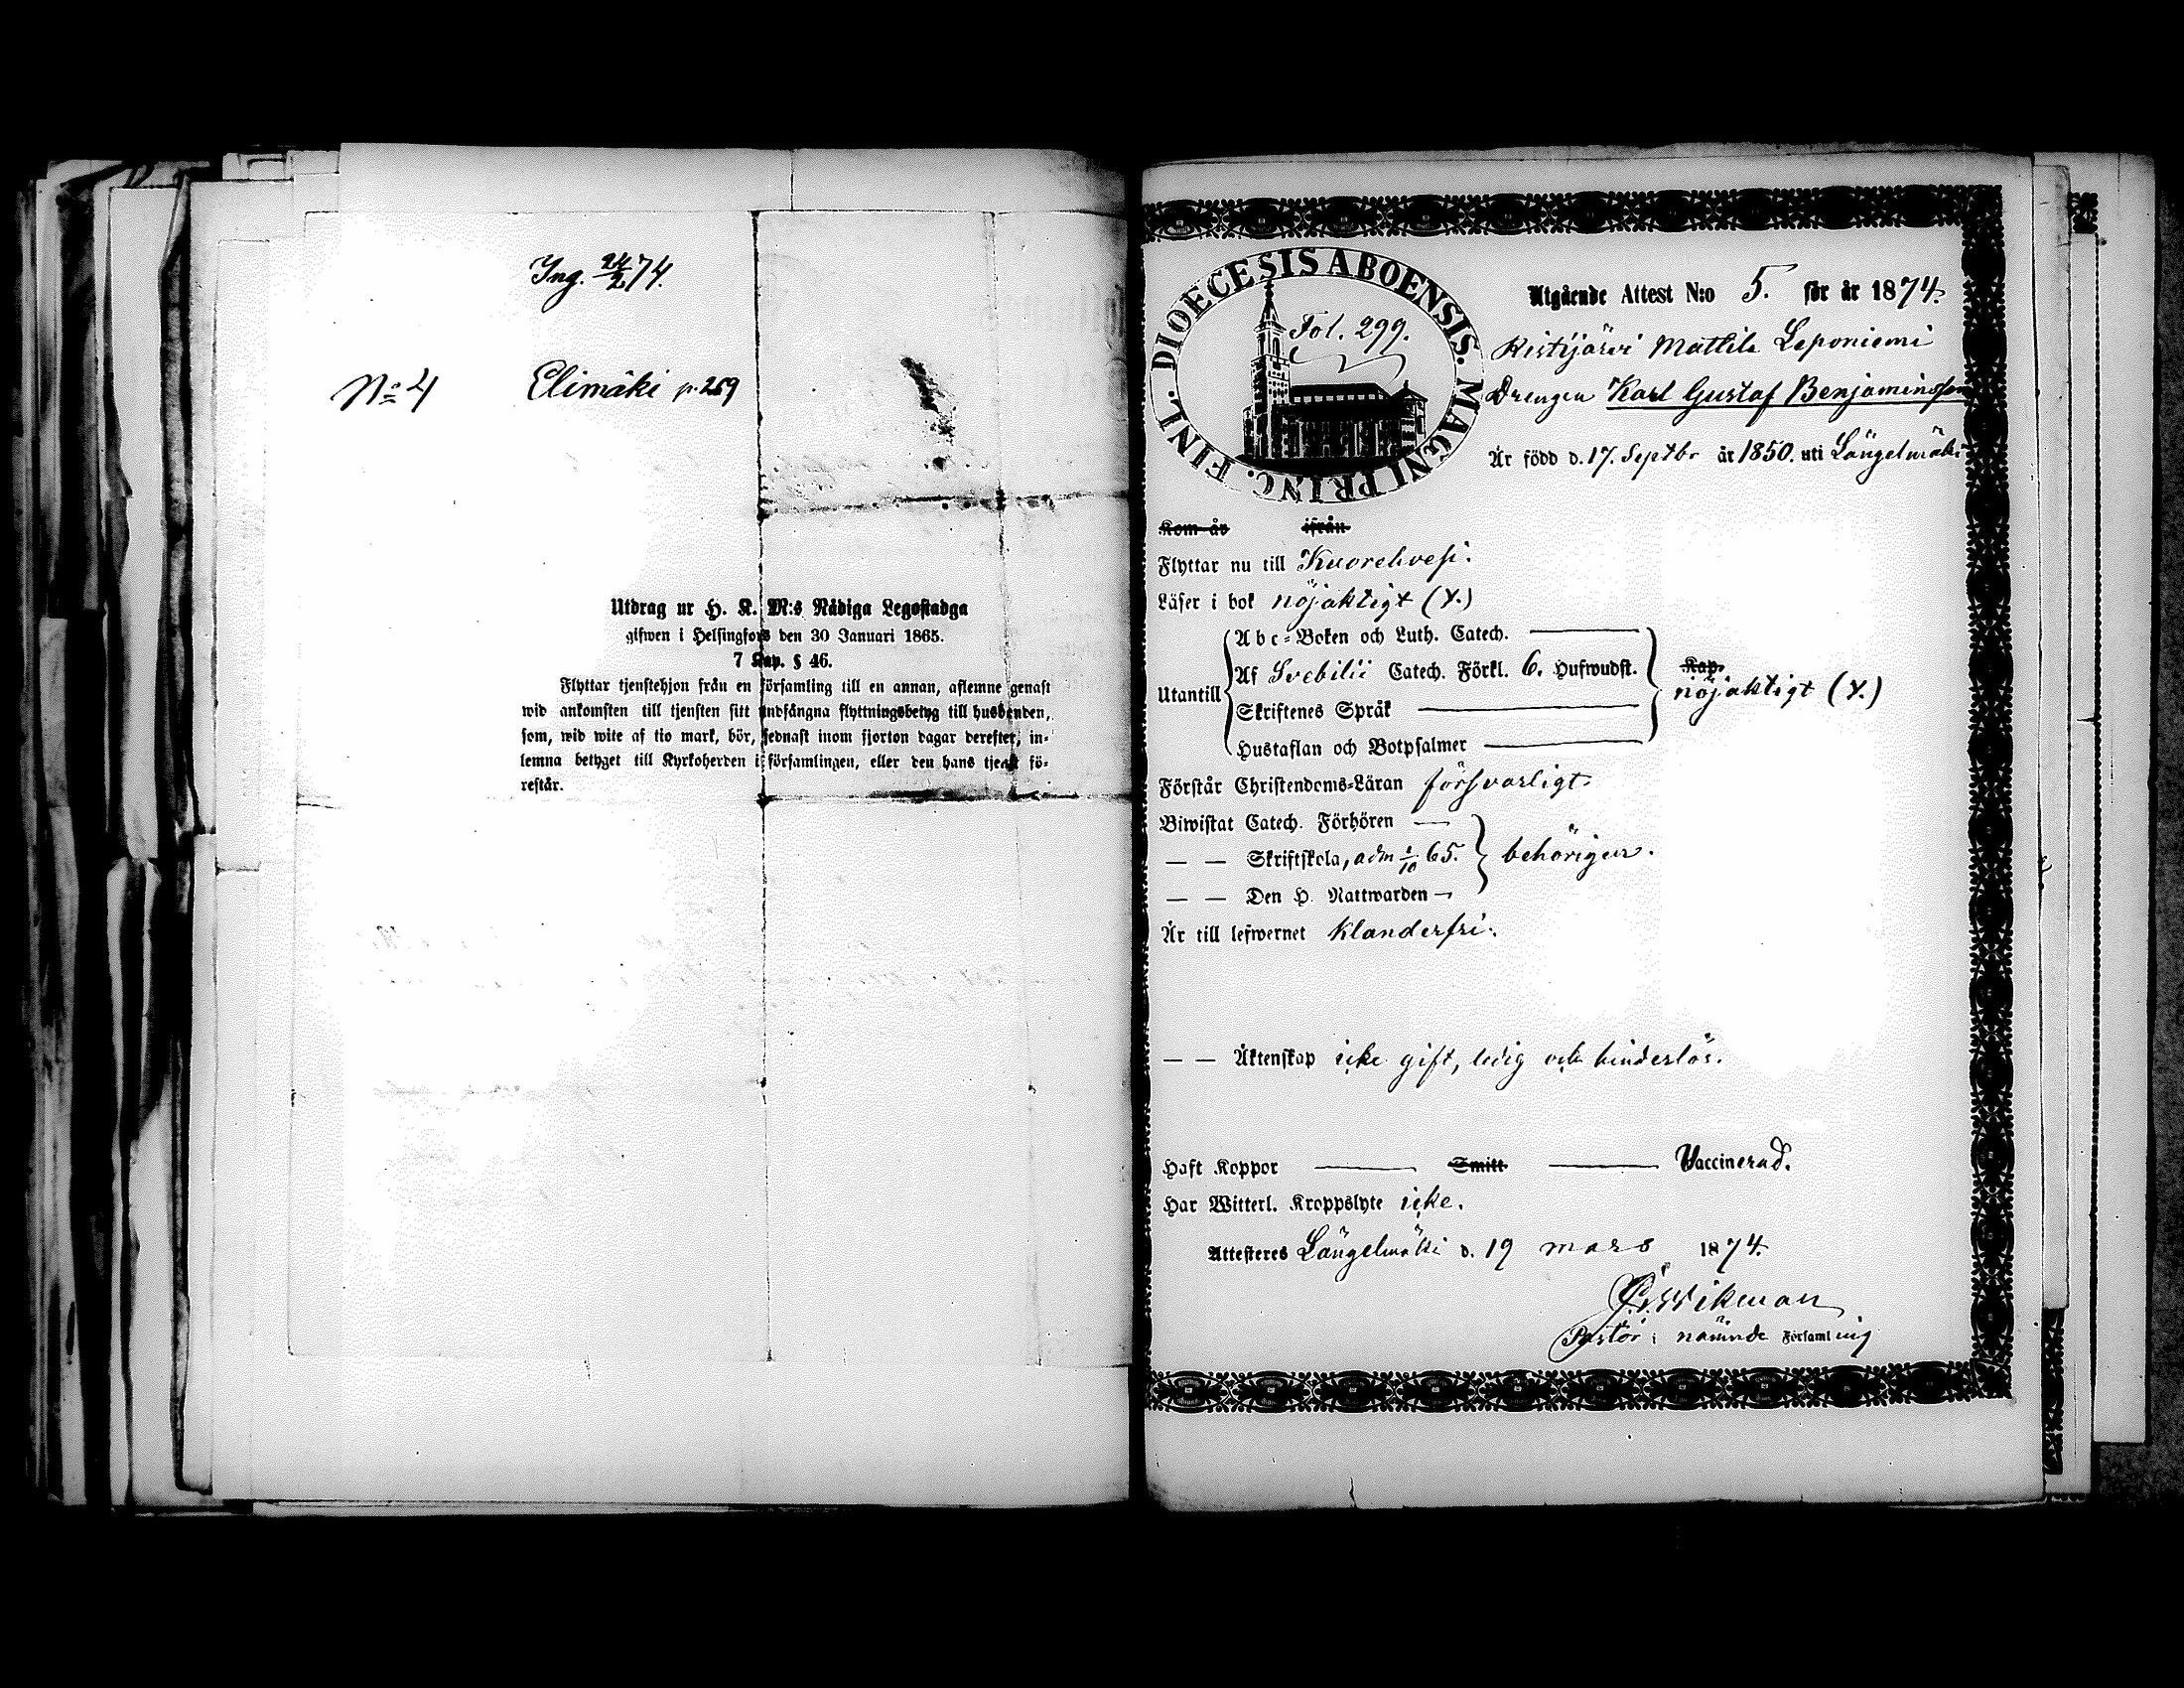 Ing. 24/2 74.
No 4 Elimäki p. 259
Utdrag ur H. K. M:s Nådiga Legostadga
gifwen i Helsingfors den 30 Januari 1865.
7 Kap. § 46.
Flyttar tjenstehjon från en församling till en annan, aflemne genast
wid ankomsten till tjensten sitt undfångna flyttningsbetyg till husbonden,
som, wid wite af tio mark, bör, sednast inom fjorton dagar derefter, in-
lemna betyget till Kyrkoherden i församlingen, eller den hans tjenst fö-
restår.
DIOECESIS ABOENSIS. MAGNI PRINC. FINL.
Fol. 299.
Utgående Attest N:o 5. för år 1874.
Ristijärvi Mattila Leponiemi
Drengen Karl Gustaf Benjaminsson
Är född d. 17. Septbr år 1850. uti Längelmäki
Kom år ifrån
Flyttar nu till Kuorehvesi.
Läser i bok nöjaktigt (y.)
Utantill
Abc-Boken och Luth. Catech.
Af Svebilii Catech. Förkl. 6. Hufwudst.
Skriftenes Språk
Hustaflan och Botpsalmer
Kap.
nöjaktigt (y.)
Förstår Christendoms-Läran försvarligt.
Biwistat Catech. Förhören —
— — Skriftskola, adm 1/10 65. behörigen.
— — Den H. Nattwarden —
Är till lefwernet klanderfri.
— — Äktenskap icke gift, ledig och hinderlös.
Haft Koppor — Smitt — Vaccinerad.
Har Witterl. Kroppslyte icke.
Attesteres Längelmäki d. 19 mars 1874.
Wikman
Pastor i nämnde Församling